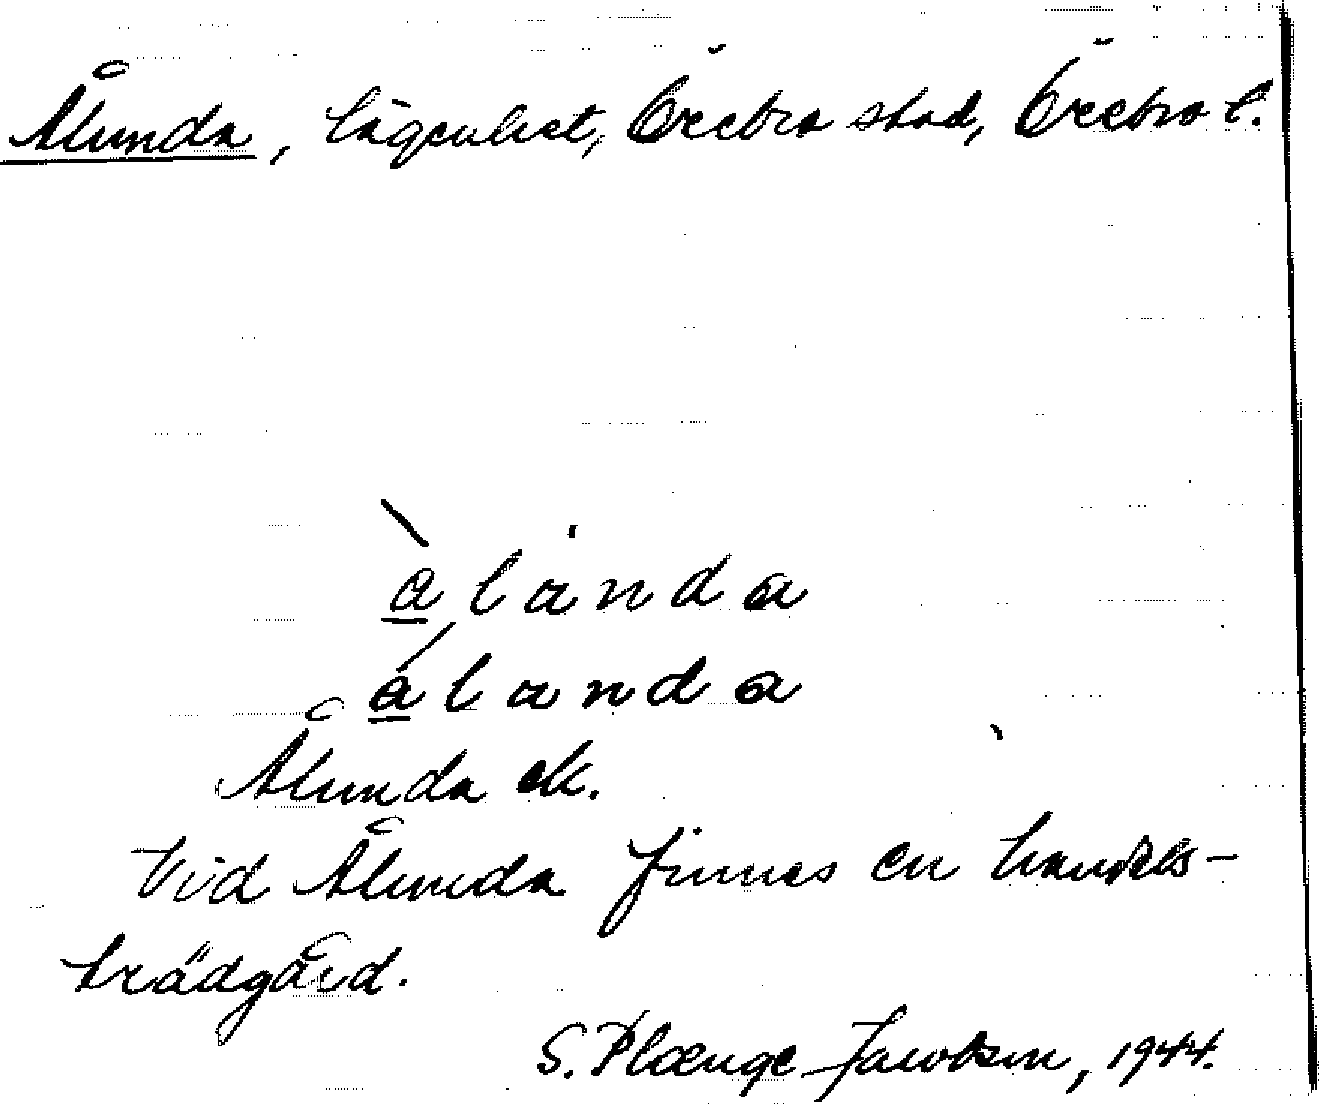 Ålunda, lägenhet, Örebro stad, Örebro l.
àlȧnda
álanda
Ålunda ek.
Vid Ålunda finnes en handels-
trädgård.
S. Plænge Jacobson, 1944.